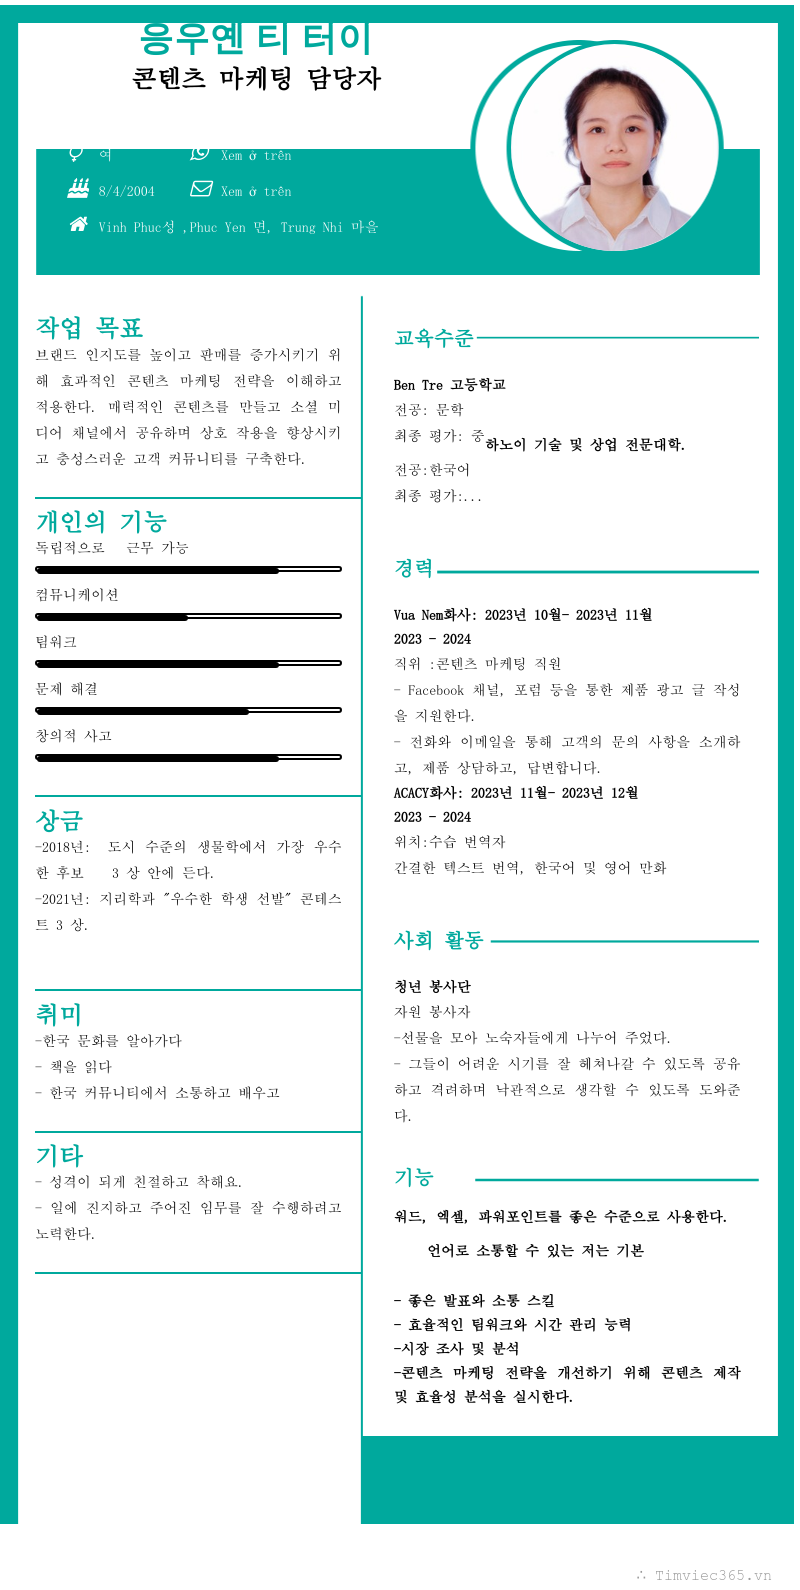 응우옌 티 터이
콘텐츠 마케팅 담당자
여
Xem ở trên
8/4/2004
Xem ở trên
Vinh Phuc성 ,Phuc Yen 면, Trung Nhi 마을
작업 목표
브랜드 인지도를 높이고 판매를 증가시키기 위
해 효과적인 콘텐츠 마케팅 전략을 이해하고
적용한다. 매력적인 콘텐츠를 만들고 소셜 미
디어 채널에서 공유하며 상호 작용을 향상시키
고 충성스러운 고객 커뮤니티를 구축한다.
개인의 기능
독립적으로 근무 가능
컴뮤니케이션
팀워크
문제 해결
창의적 사고
상금
-2018년: 도시 수준의 생물학에서 가장 우수
한 후보 3 상 안에 든다.
-2021년: 지리학과 "우수한 학생 선발" 콘테스
트 3 상.
취미
-한국 문화를 알아가다
- 책을 읽다
- 한국 커뮤니티에서 소통하고 배우고
기타
- 성격이 되게 친절하고 착해요.
- 일에 진지하고 주어진 임무를 잘 수행하려고
노력한다.
교육수준
Ben Tre 고등학교
전공: 문학
최종 평가: 중
하노이 기술 및 상업 전문대학.
전공:한국어
최종 평가:...
경력
Vua Nem화사: 2023년 10월- 2023년 11월
2023 - 2024
직위 :콘텐츠 마케팅 직원
- Facebook 채널, 포럼 등을 통한 제품 광고 글 작성
을 지원한다.
- 전화와 이메일을 통해 고객의 문의 사항을 소개하
고, 제품 상담하고, 답변합니다.
ACACY화사: 2023년 11월- 2023년 12월
2023 - 2024
위치:수습 번역자
간결한 텍스트 번역, 한국어 및 영어 만화
사회 활동
청년 봉사단
자원 봉사자
-선물을 모아 노숙자들에게 나누어 주었다.
- 그들이 어려운 시기를 잘 헤쳐나갈 수 있도록 공유
하고 격려하며 낙관적으로 생각할 수 있도록 도와준
다.
기능
워드, 엑셀, 파워포인트를 좋은 수준으로 사용한다.
언어로 소통할 수 있는 저는 기본
- 좋은 발표와 소통 스킬
- 효율적인 팀워크와 시간 관리 능력
-시장 조사 및 분석
-콘텐츠 마케팅 전략을 개선하기 위해 콘텐츠 제작
및 효율성 분석을 실시한다.
∴ Timviec365.vn